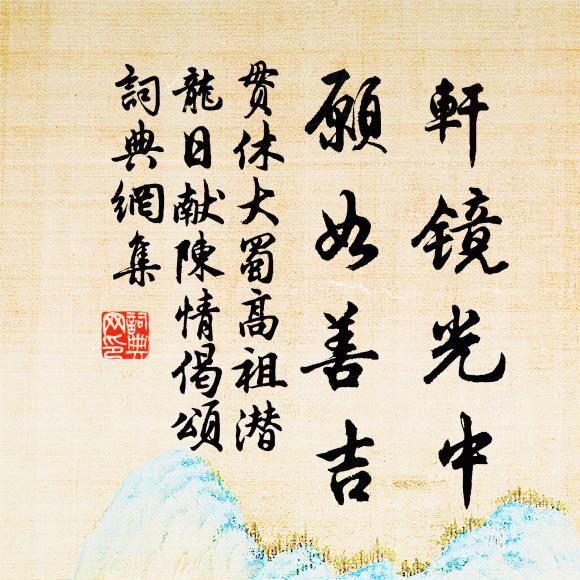 軒鏡光中
願如善吉
贯休大蜀高祖潜
龍日献陳情偈頌
詞典網集
詞典
网印